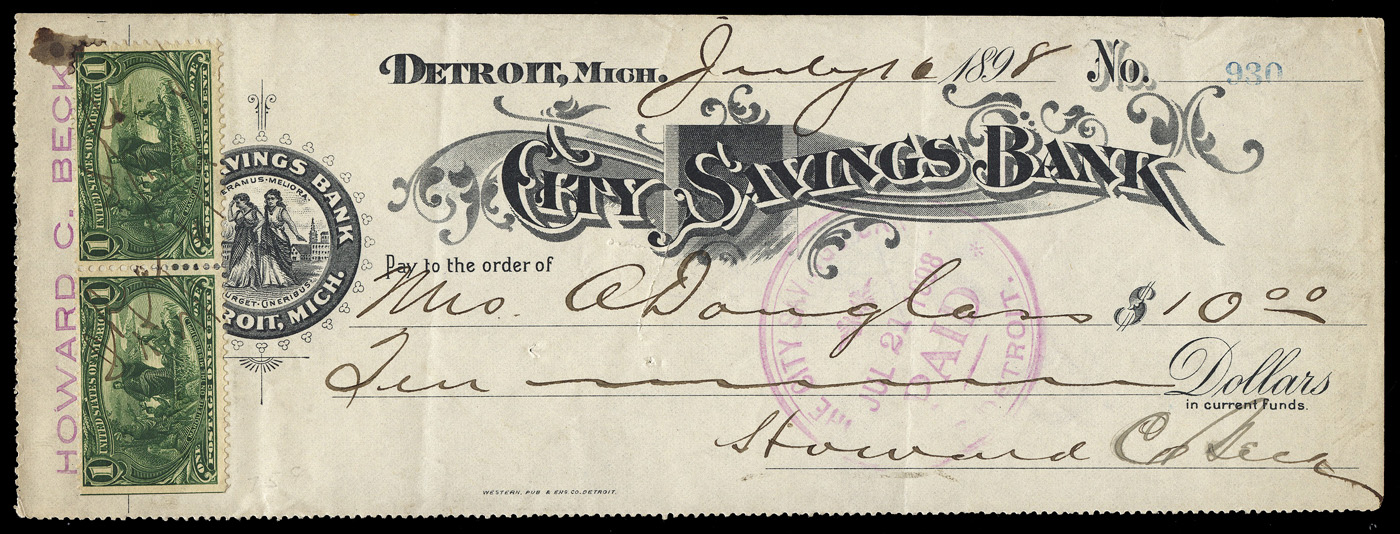 HOWARD C. BECK
1 UNITED STATES OF AMERICA 1
POSTAGE ONE CENT
1 UNITED STATES OF AMERICA 1
POSTAGE ONE CENT
DETROIT, MICH. July 16 1898 No. 930
CITY SAVINGS BANK
AVINGS BANK
ERAMUS·MELIORA
URGET·CINERIBUS
ROIT, MICH.
Pay to the order of
Mrs. A Douglass $ 10 00
Ten Dollars
in current funds.
Howard C Beck
THE CITY SAV
JUL 21 1898
PAID
DETROIT.
WESTERN, PUB & ENG. CO. DETROIT.